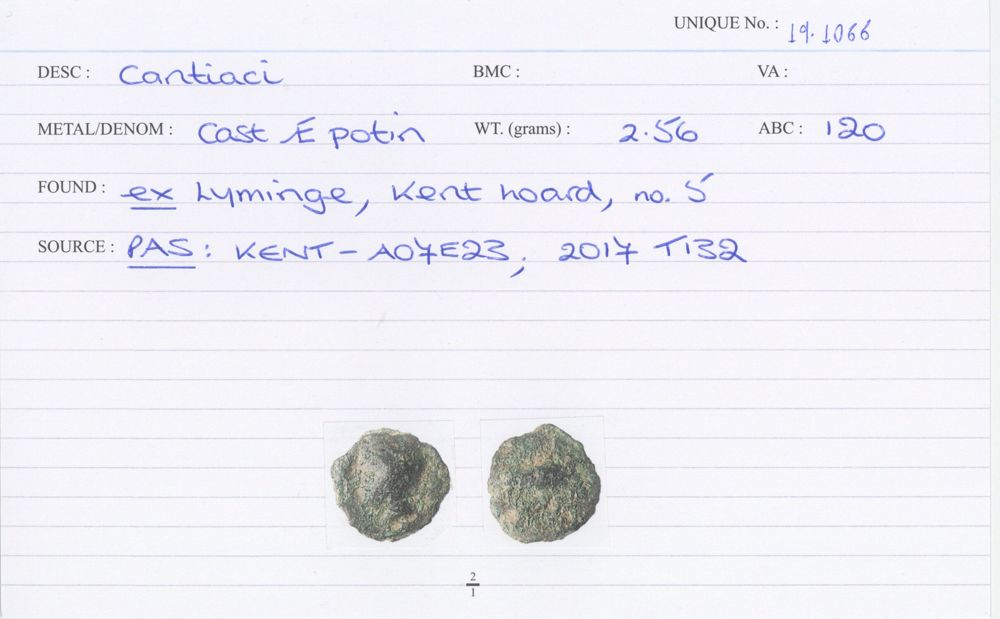 UNIQUE No. : 19.1066
DESC : Cantiaci BMC : VA :
METAL/DENOM : Cast Æ potin WT. (grams) : 2.56 ABC : 120
FOUND : ex Lyminge, Kent hoard, no. 5
SOURCE : PAS : KENT - A07E23; 2017 T132
2
1